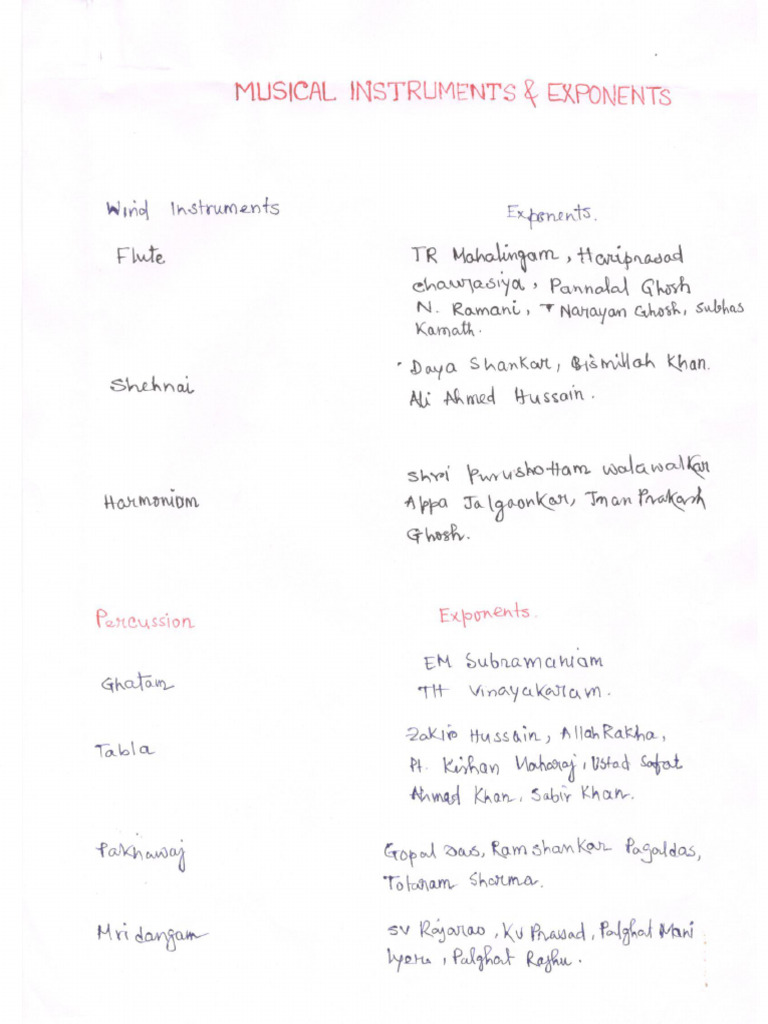 MUSICAL INSTRUMENTS & EXPONENTS
Wind Instruments Exponents.
Flute TR Mahalingam, Hariprasad
chaurasiya, Pannalal Ghosh
N. Ramani, T Narayan Ghosh, Subhas
Kamath.
Shehnai Daya Shankar, Bismillah Khan.
Ali Ahmed Hussain.
Shri Purushottam walawalkar
Harmoniom Appa Jalgaonkar, Jnan Prakash
Ghosh.
Percussion Exponents.
EM Subramaniam
Ghatam
TH Vinayakaram.
Zakir Hussain, Allah Rakha,
Tabla Pt. Kishan Maharaj, Ustad Safat
Ahmed Khan, Sabir Khan.
Pakhawaj Gopal Das, Ram shankar Pagaldas,
Totaram Sharma.
Mridangam SV Rajarao, KV Prasad, Palghat Mani
Iyere, Palghat Raghu.